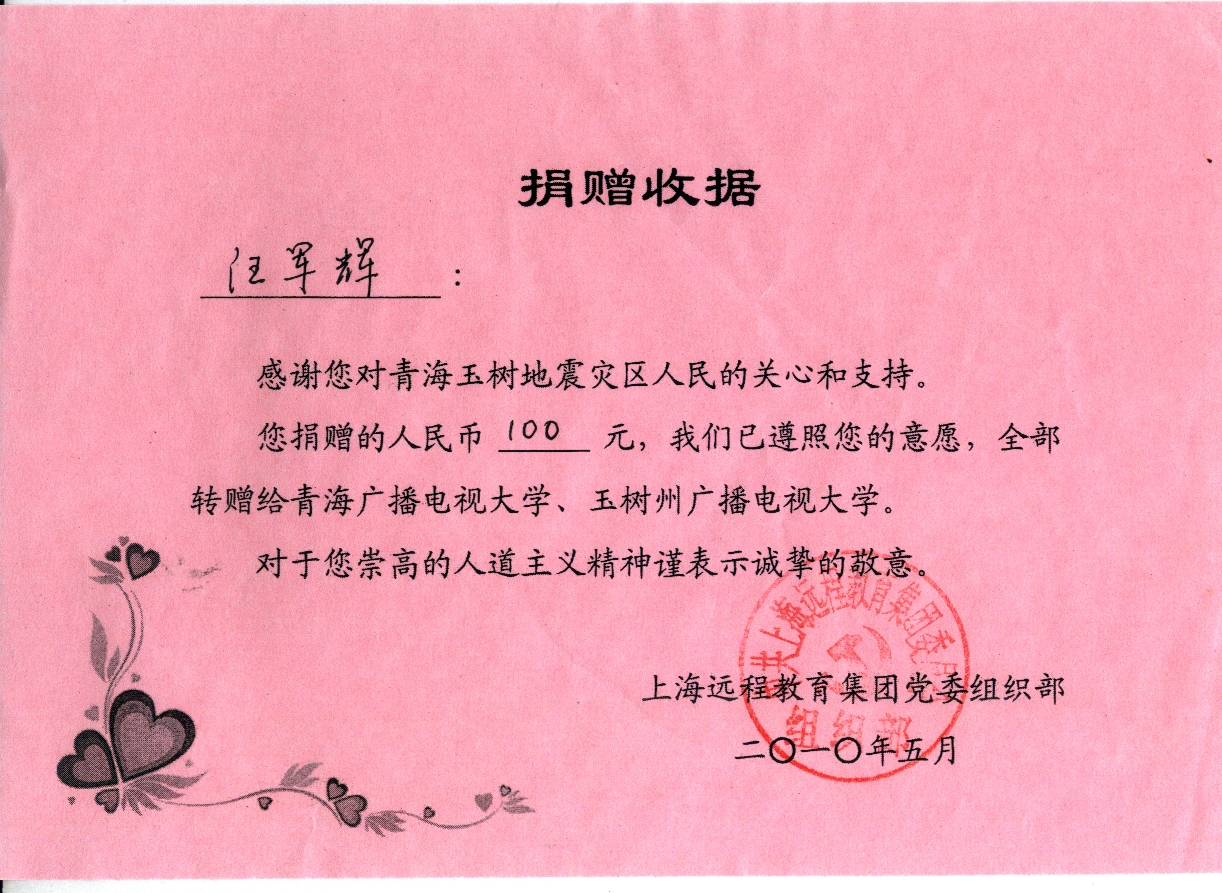 捐赠收据
汪军辉：
感谢您对青海玉树地震灾区人民的关心和支持。
您捐赠的人民币 100 元，我们已遵照您的意愿，全部
转赠给青海广播电视大学、玉树州广播电视大学。
对于您崇高的人道主义精神谨表示诚挚的敬意。
共上海远程教育集团委
组织部
上海远程教育集团党委组织部
二〇一〇年五月